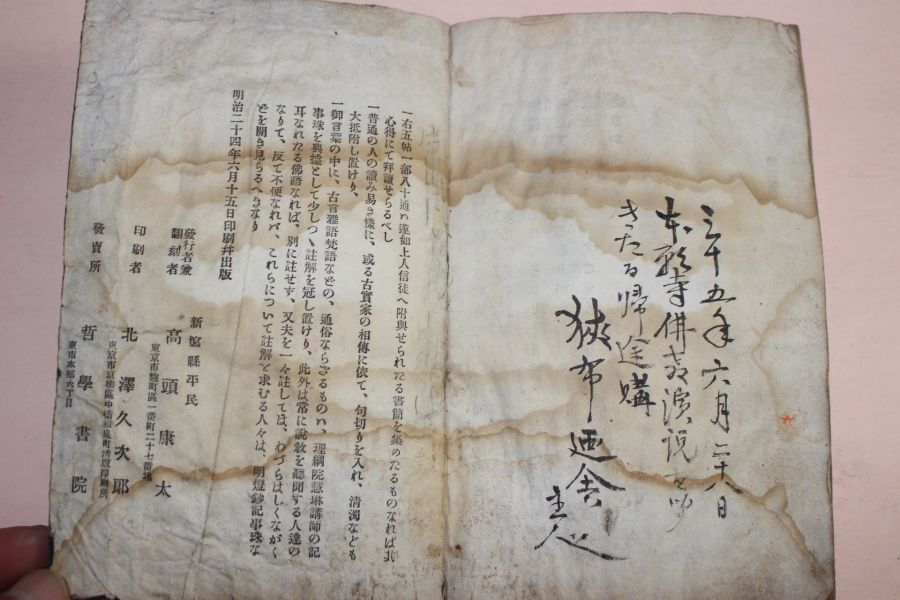 三十五年六月二十八日
本願寺佛教演説
きたる帰途購
狭布廼舎
主人
一右五帖一部八十通ハ蓮如上人信徒へ附與せられたる書簡を集めたるものなれば其
心得にて拜讀せらるべし
一普通の人の讀み易き樣に、或る古實家の相傳に依て、句切りを入れ、清濁なども
大抵附し置けり、
一御言葉の中に、古言雅語梵語などの、通俗ならざるものハ、理綱院慧琳講師の記
事珠を典據として少しつゝ註解を冠し置けり、此外は常に説敎を聽聞する人達の
耳なれたる佛語なれば、別に註せず、又夫を一々註しては、わづらはしくながく
なりて、反て不便なれバ、これらについて註解を求むる人々は、明燈鈔記事珠な
どを開き見らるべきなり
明治二十四年六月十五日印刷幷出版
新潟縣平民
發行者兼
翻刻者
高頭康太
東京市麴町區一番町二十七番地
印刷者
北澤久次郎
發賣所
哲學書院